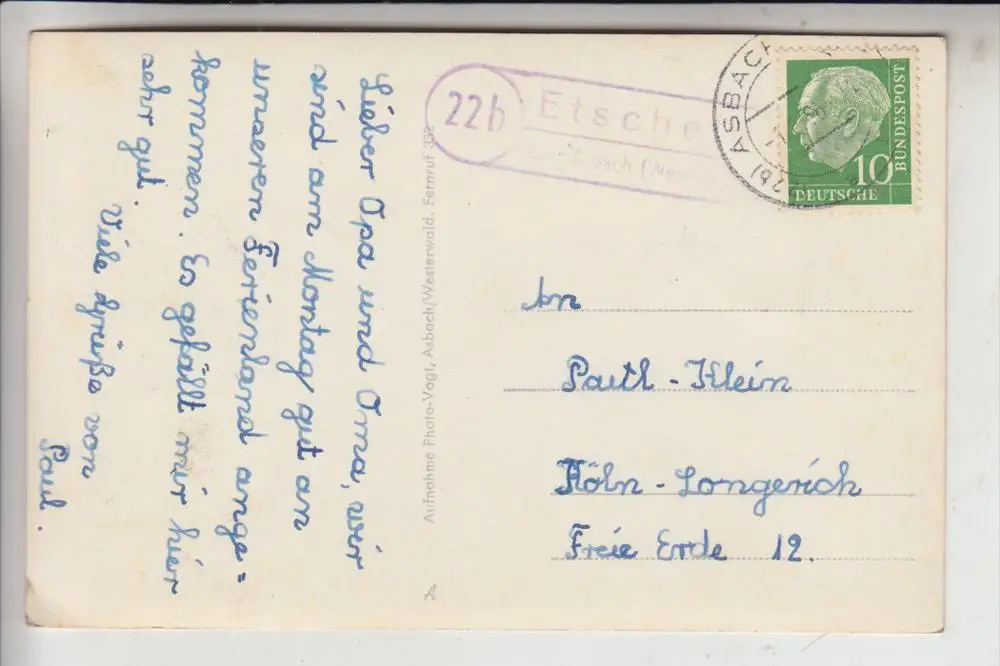 Lieber Opa und Oma, wir
sind am Montag gut an
unseren Ferienland ange=
kommen. Es gefällt mir hier
sehr gut.
Viele Grüße von
Paul.
Aufnahme Photo-Vogt, Asbach/Westerwald. Fernruf 332
22b
Etsche
(22b) ASBACH
10
DEUTSCHE
BUNDESPOST
An
Paul - Klein
Köln - Longerich
Freie Erde 12.